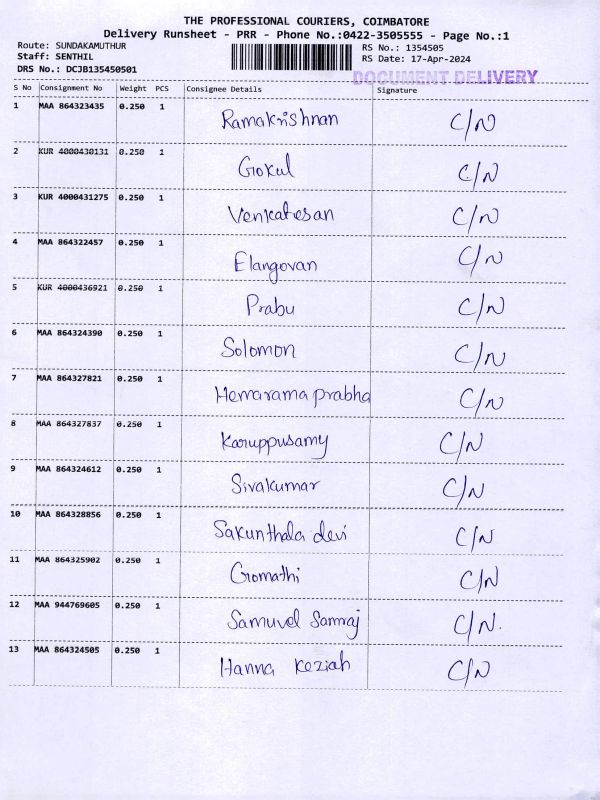 THE PROFESSIONAL COURIERS, COIMBATORE
Delivery Runsheet - PRR - Phone No.:0422-3505555 - Page No.:1
Route: SUNDAKAMUTHUR RS No.: 1354505
Staff: SENTHIL RS Date: 17-Apr-2024
DRS No.: DCJB135450501 DOCUMENT DELIVERY
S No Consignment No Weight PCS Consignee Details Signature
1 MAA 864323435 0.250 1 Ramakrishnan C/N
2 KUR 4000430131 0.250 1 Gokul C/N
3 KUR 4000431275 0.250 1 Venkatesan C/N
4 MAA 864322457 0.250 1 Elangovan C/N
5 KUR 4000436921 0.250 1 Prabu C/N
6 MAA 864324390 0.250 1 Solomon C/N
7 MAA 864327821 0.250 1 Hemarama prabha C/N
8 MAA 864327837 0.250 1 Karuppusamy C/N
9 MAA 864324612 0.250 1 Sivakumar C/N
10 MAA 864328856 0.250 1 Sakunthala devi C/N
11 MAA 864325902 0.250 1 Gomathi C/N
12 MAA 944769605 0.250 1 Samuvel Samraj C/N.
13 MAA 864324505 0.250 1 Hanna Keziah C/N